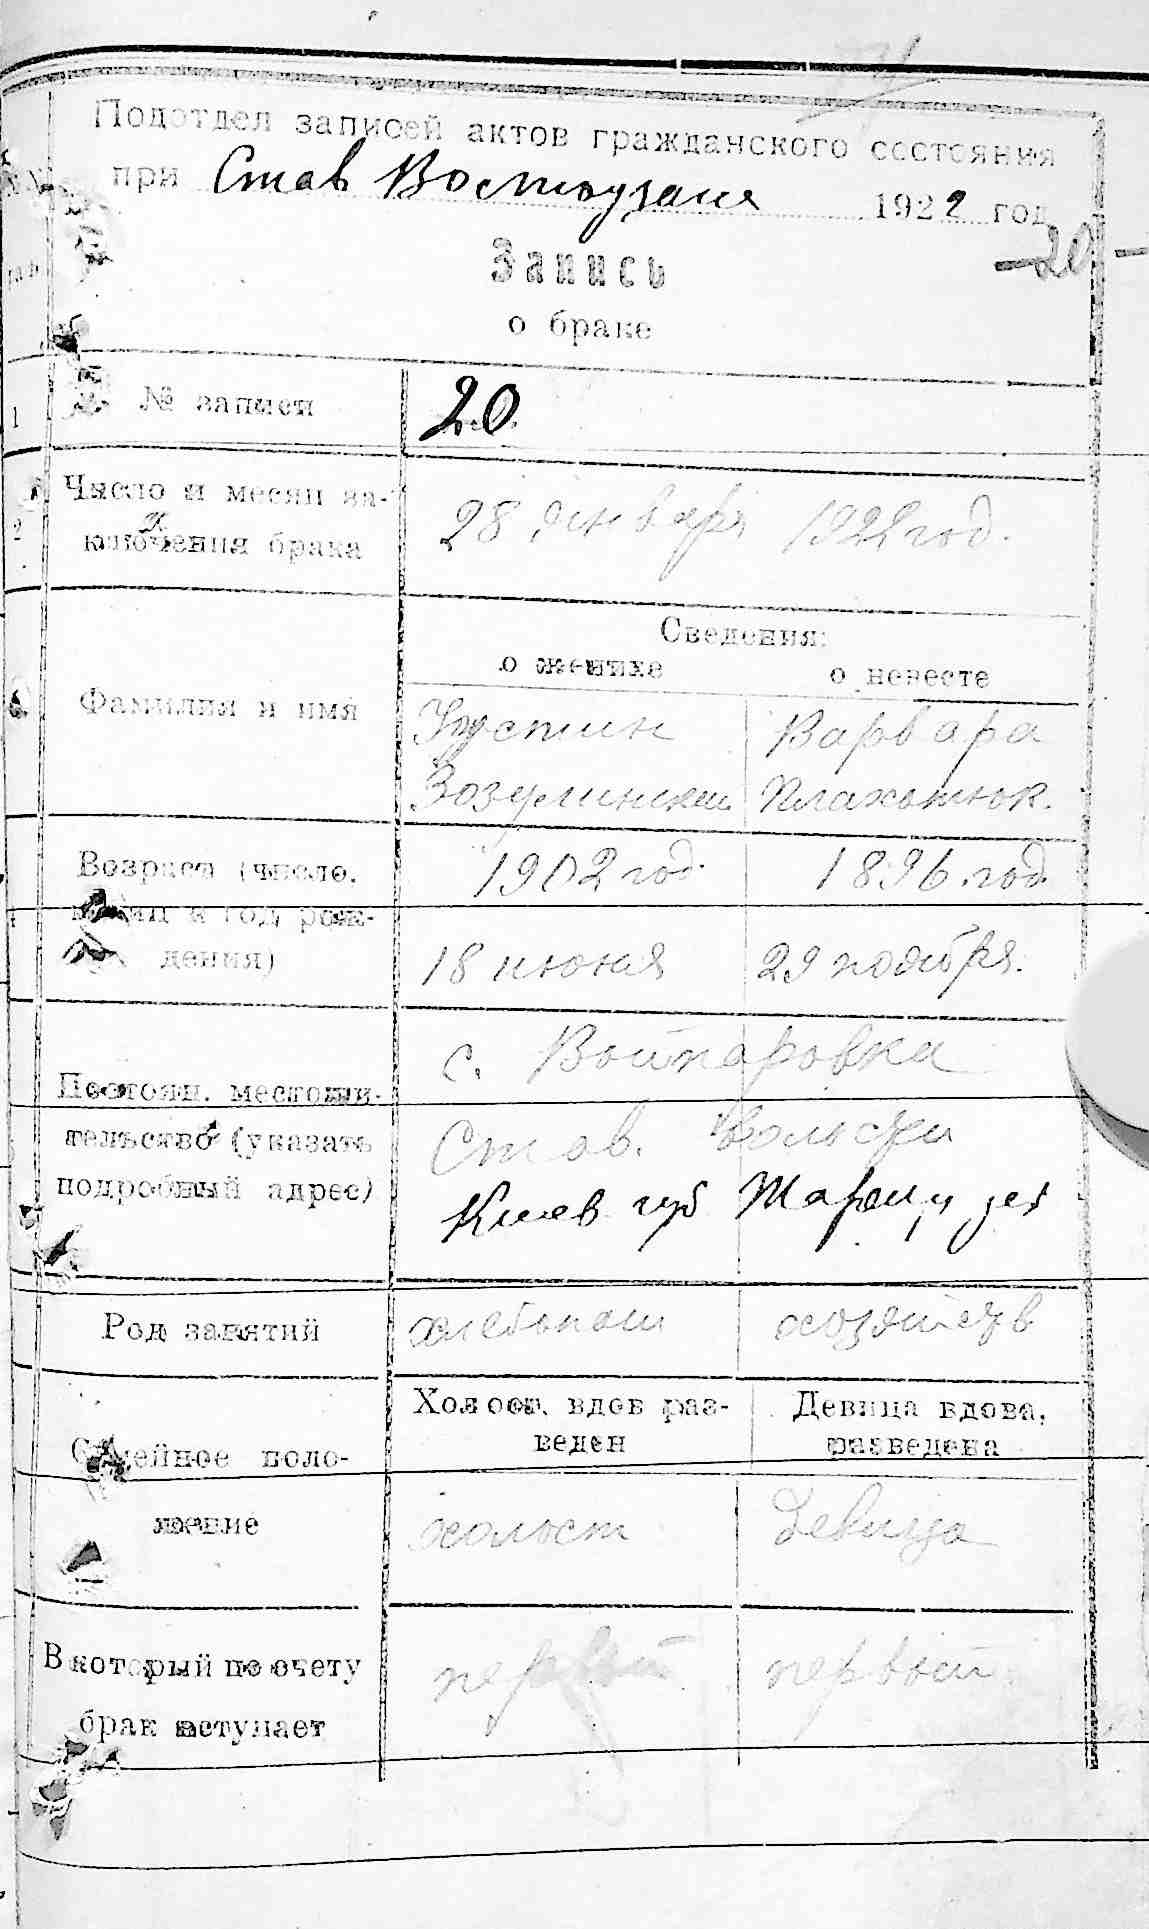 Подотдел записей актов гражданского состояния
при Став 1922 год
-20-
Запись
о браке
№ записи 20
Число и месяц за-
ключения брака
28 января 1922 год.
Сведения:
о женихе о невесте
Фамилия и имя
Устин Варвара
Плахотнюк.
Возраст (число,
месяц и год рож-
дения)
1902 год. 1896. год.
18 июня 29 ноября.
Постоян. местожи-
тельство (указать
подробный адрес)
с.
Став.
Киев губ
Род занятий
хлебопаш
Холост, вдов раз-
веден
Девица вдова,
разведена
Семейное поло-
жение
холост Девица
В который по счету
брак вступает
первый первый